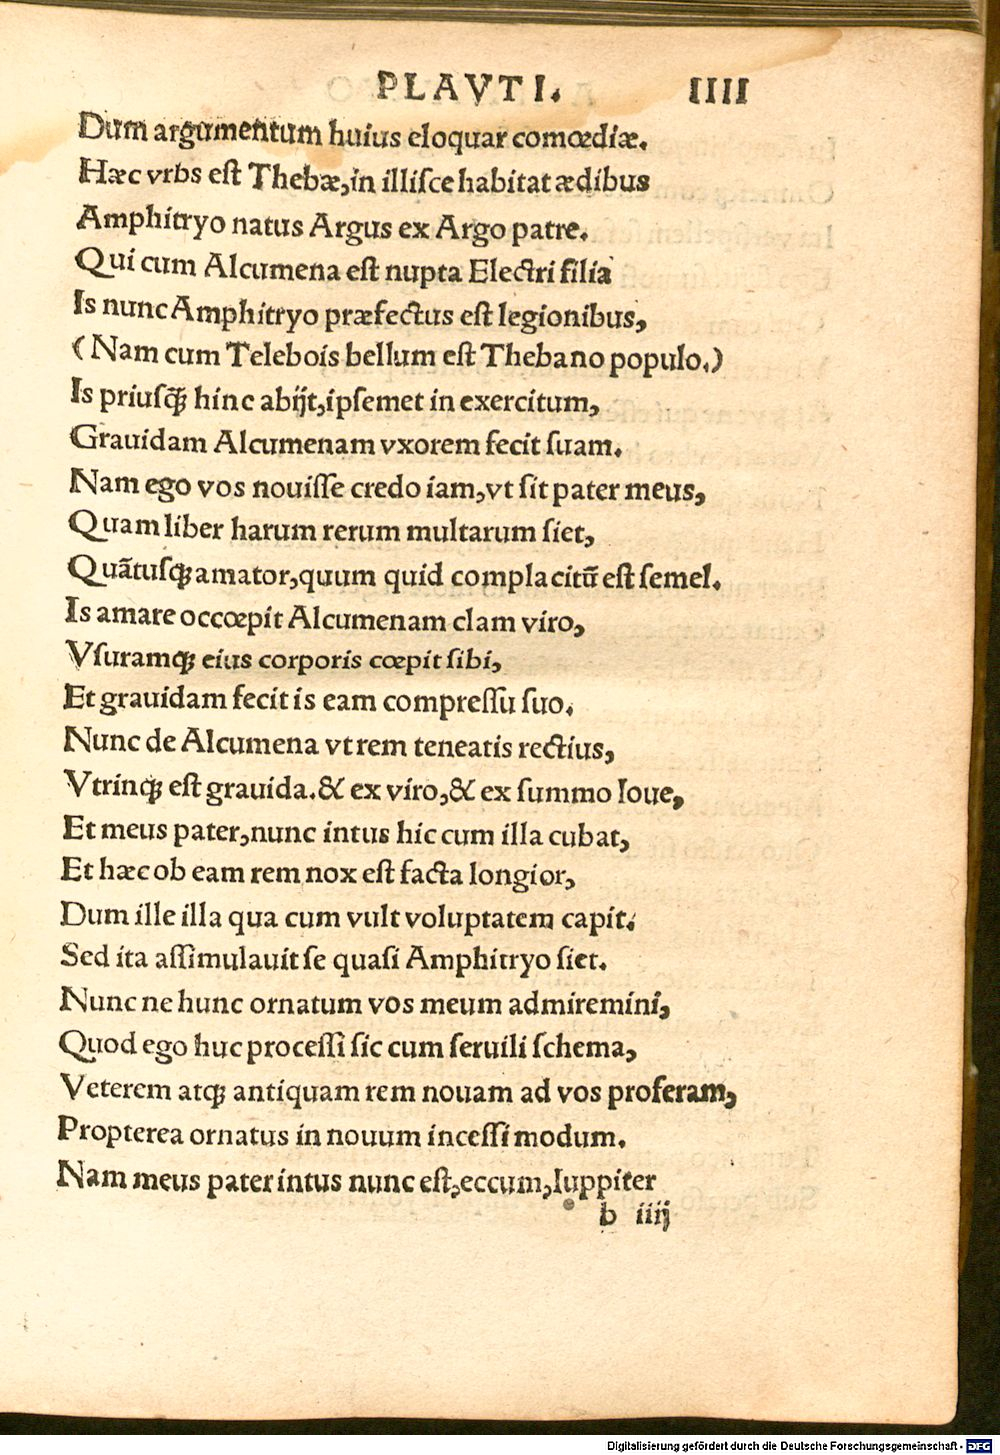 PLAVTI. IIII
Dum argumentum huius eloquar comœdiæ.
Hæc vrbs est Thebæ,in illisce habitat ædibus
Amphitryo natus Argus ex Argo patre.
Qui cum Alcumena est nupta Electri filia
Is nunc Amphitryo præfectus est legionibus,
(Nam cum Telebois bellum est Thebano populo.)
Is priusq̃ hinc abijt,ipsemet in exercitum,
Grauidam Alcumenam vxorem fecit suam.
Nam ego vos nouisse credo iam,vt sit pater meus,
Quam liber harum rerum multarum siet,
Quãtusq; amator,quum quid complacitũ est semel.
Is amare occœpit Alcumenam clam viro,
Vsuramq; eius corporis cœpit sibi,
Et grauidam fecit is eam compressu suo.
Nunc de Alcumena vt rem teneatis rectius,
Vtrinq; est grauida.& ex viro,& ex summo Ioue,
Et meus pater,nunc intus hic cum illa cubat,
Et hæc ob eam rem nox est facta longior,
Dum ille illa qua cum vult voluptatem capit.
Sed ita assimulauit se quasi Amphitryo siet.
Nunc ne hunc ornatum vos meum admiremini,
Quod ego huc processi sic cum seruili schema,
Veterem atq; antiquam rem nouam ad vos proferam,
Propterea ornatus in nouum incessi modum.
Nam meus pater intus nunc est,eccum,Iuppiter
b iiij
Digitalisierung gefördert durch die Deutsche Forschungsgemeinschaft - DFG